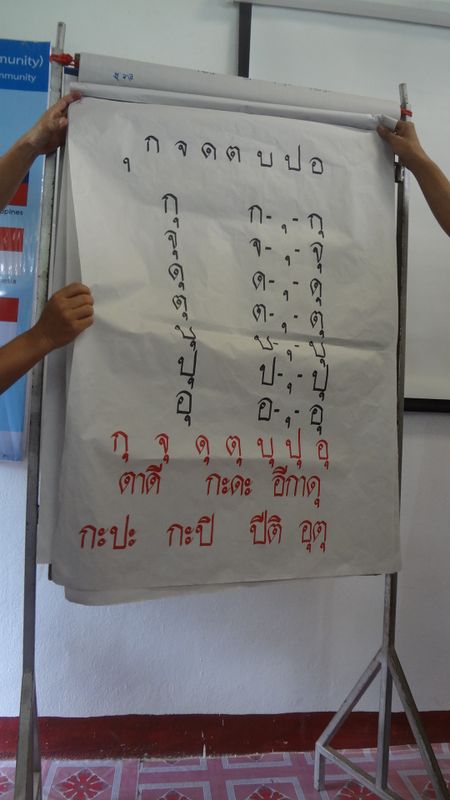 munity)
mmunity
ippines
ุ ก จ ด ต บ ป อ
กุ ก- ุ- กุ
จุ จ- ุ- จุ
ดุ ด- ุ- ดุ
ตุ ต- ุ- ตุ
บุ บ- ุ- บุ
ปุ ป- ุ- ปุ
อุ อ- ุ- อุ
กุ จุ ดุ ตุ บุ ปุ อุ
ตาดี กะดะ อีกาดุ
กะปะ กะปิ ปีติ อุตุ